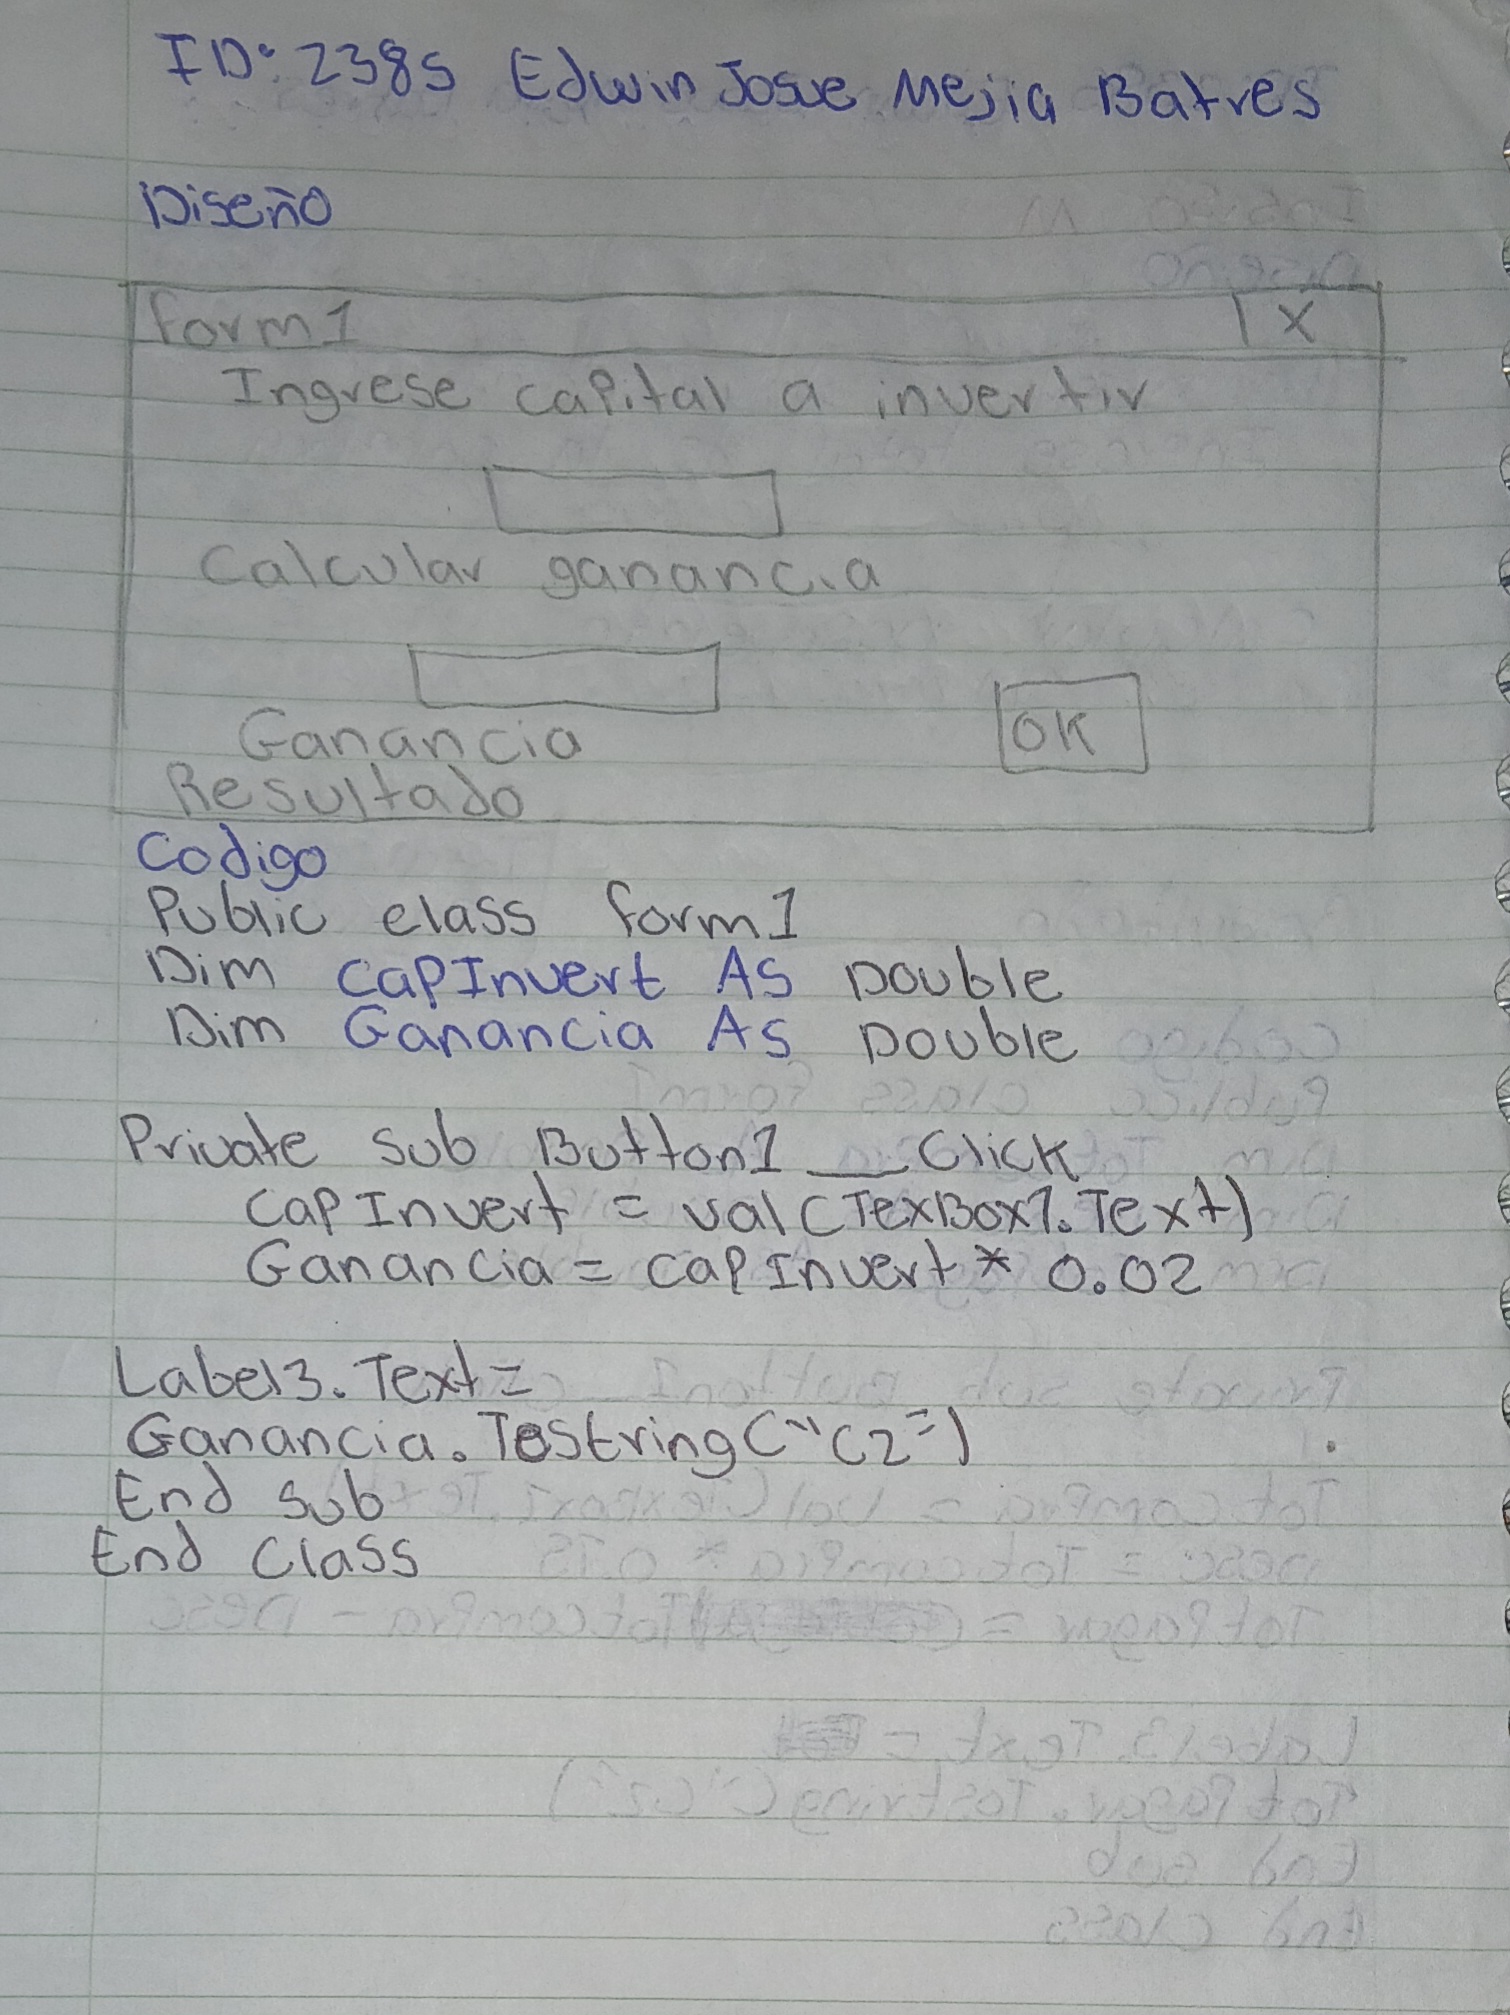 ID: 2385 Edwin Josue Mejia Batres
Diseño
form1 X
Ingrese capital a invertir
Calcular ganancia
Ganancia
OK
Resultado
Codigo
Public class form1
Dim CapInvert As Double
Dim Ganancia As Double
Private sub Button1 _ Click
CapInvert = val(TexBox1.Text)
Ganancia = CapInvert * 0.02
Label3.Text =
Ganancia.ToString("C2")
End sub
End Class